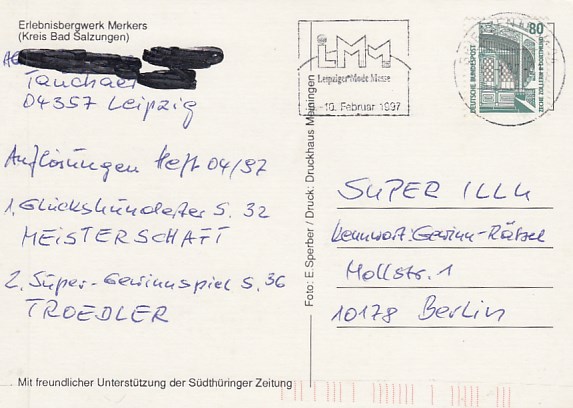 Erlebnisbergwerk Merkers
(Kreis Bad Salzungen)
Tauchaer
04357 Leipzig
Auflösungen Heft 04/97
1. Glückshundefer S. 32
MEISTERSCHAFT
2. Super-Gewinnspiel S. 36
TROEDLER
Mit freundlicher Unterstützung der Südthüringer Zeitung
Foto: E. Sperber / Druck: Druckhaus Meiningen
LMM
Leipziger Mode Messe
10. Februar 1997
80
DEUTSCHE BUNDESPOST
ZECHE ZOLLERN II DORTMUND
SUPER ILLU
Kennwort: Gewinn-Rätsel
Mollstr. 1
10178 Berlin